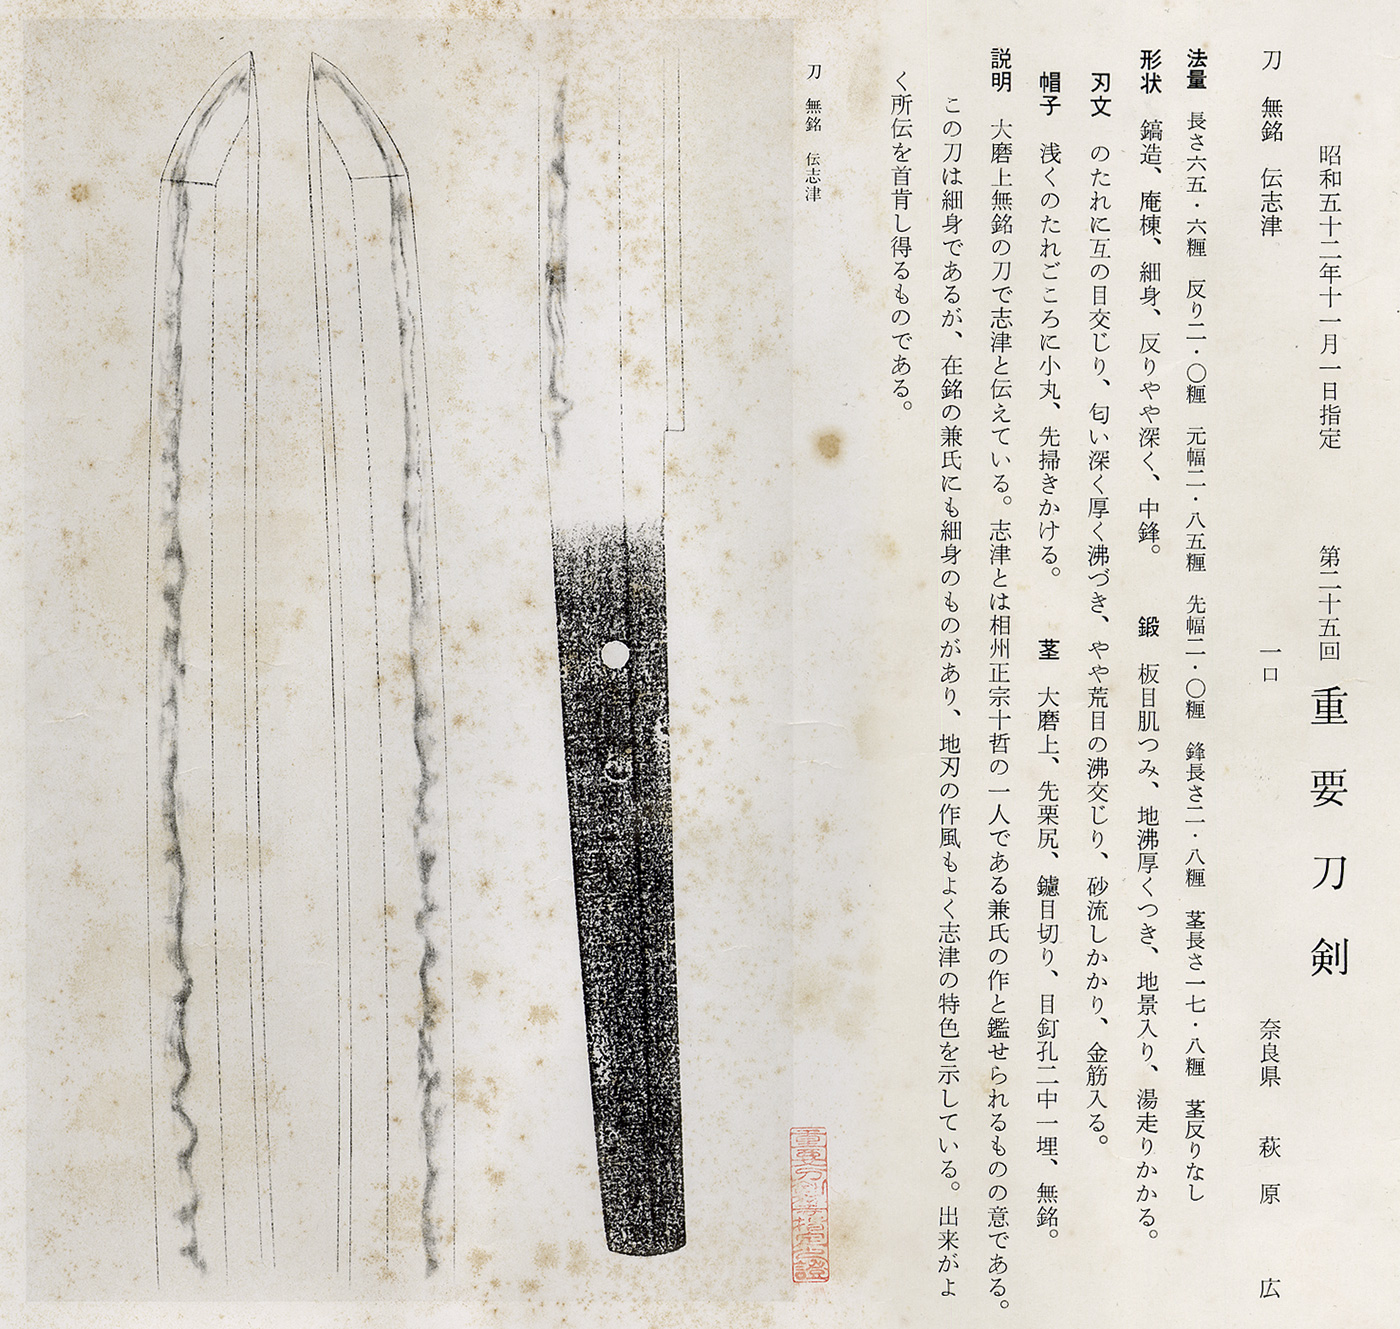 昭和五十二年十一月一日指定　第二十五回　重要刀剣
刀　無銘　伝志津　一口　奈良県　萩原　広
法量　長さ六五・六糎　反り二・〇糎　元幅二・八五糎　先幅二・〇糎　鋒長さ二・八糎　茎長さ一七・八糎　茎反りなし
形状　鎬造、庵棟、細身、反りやや深く、中鋒。　鍛　板目肌つみ、地沸厚くつき、地景入り、湯走りかかる。
刃文　のたれに互の目交じり、匂い深く厚く沸づき、やや荒目の沸交じり、砂流しかかり、金筋入る。
帽子　浅くのたれごころに小丸、先掃きかける。　茎　大磨上、先栗尻、鑢目切り、目釘孔二中一埋、無銘。
説明　大磨上無銘の刀で志津と伝えている。志津とは相州正宗十哲の一人である兼氏の作と鑑せられるものの意である。
この刀は細身であるが、在銘の兼氏にも細身のものがあり、地刃の作風もよく志津の特色を示している。出来がよ
く所伝を首肯し得るものである。
刀　無銘　伝志津
重要刀剣等指定之證